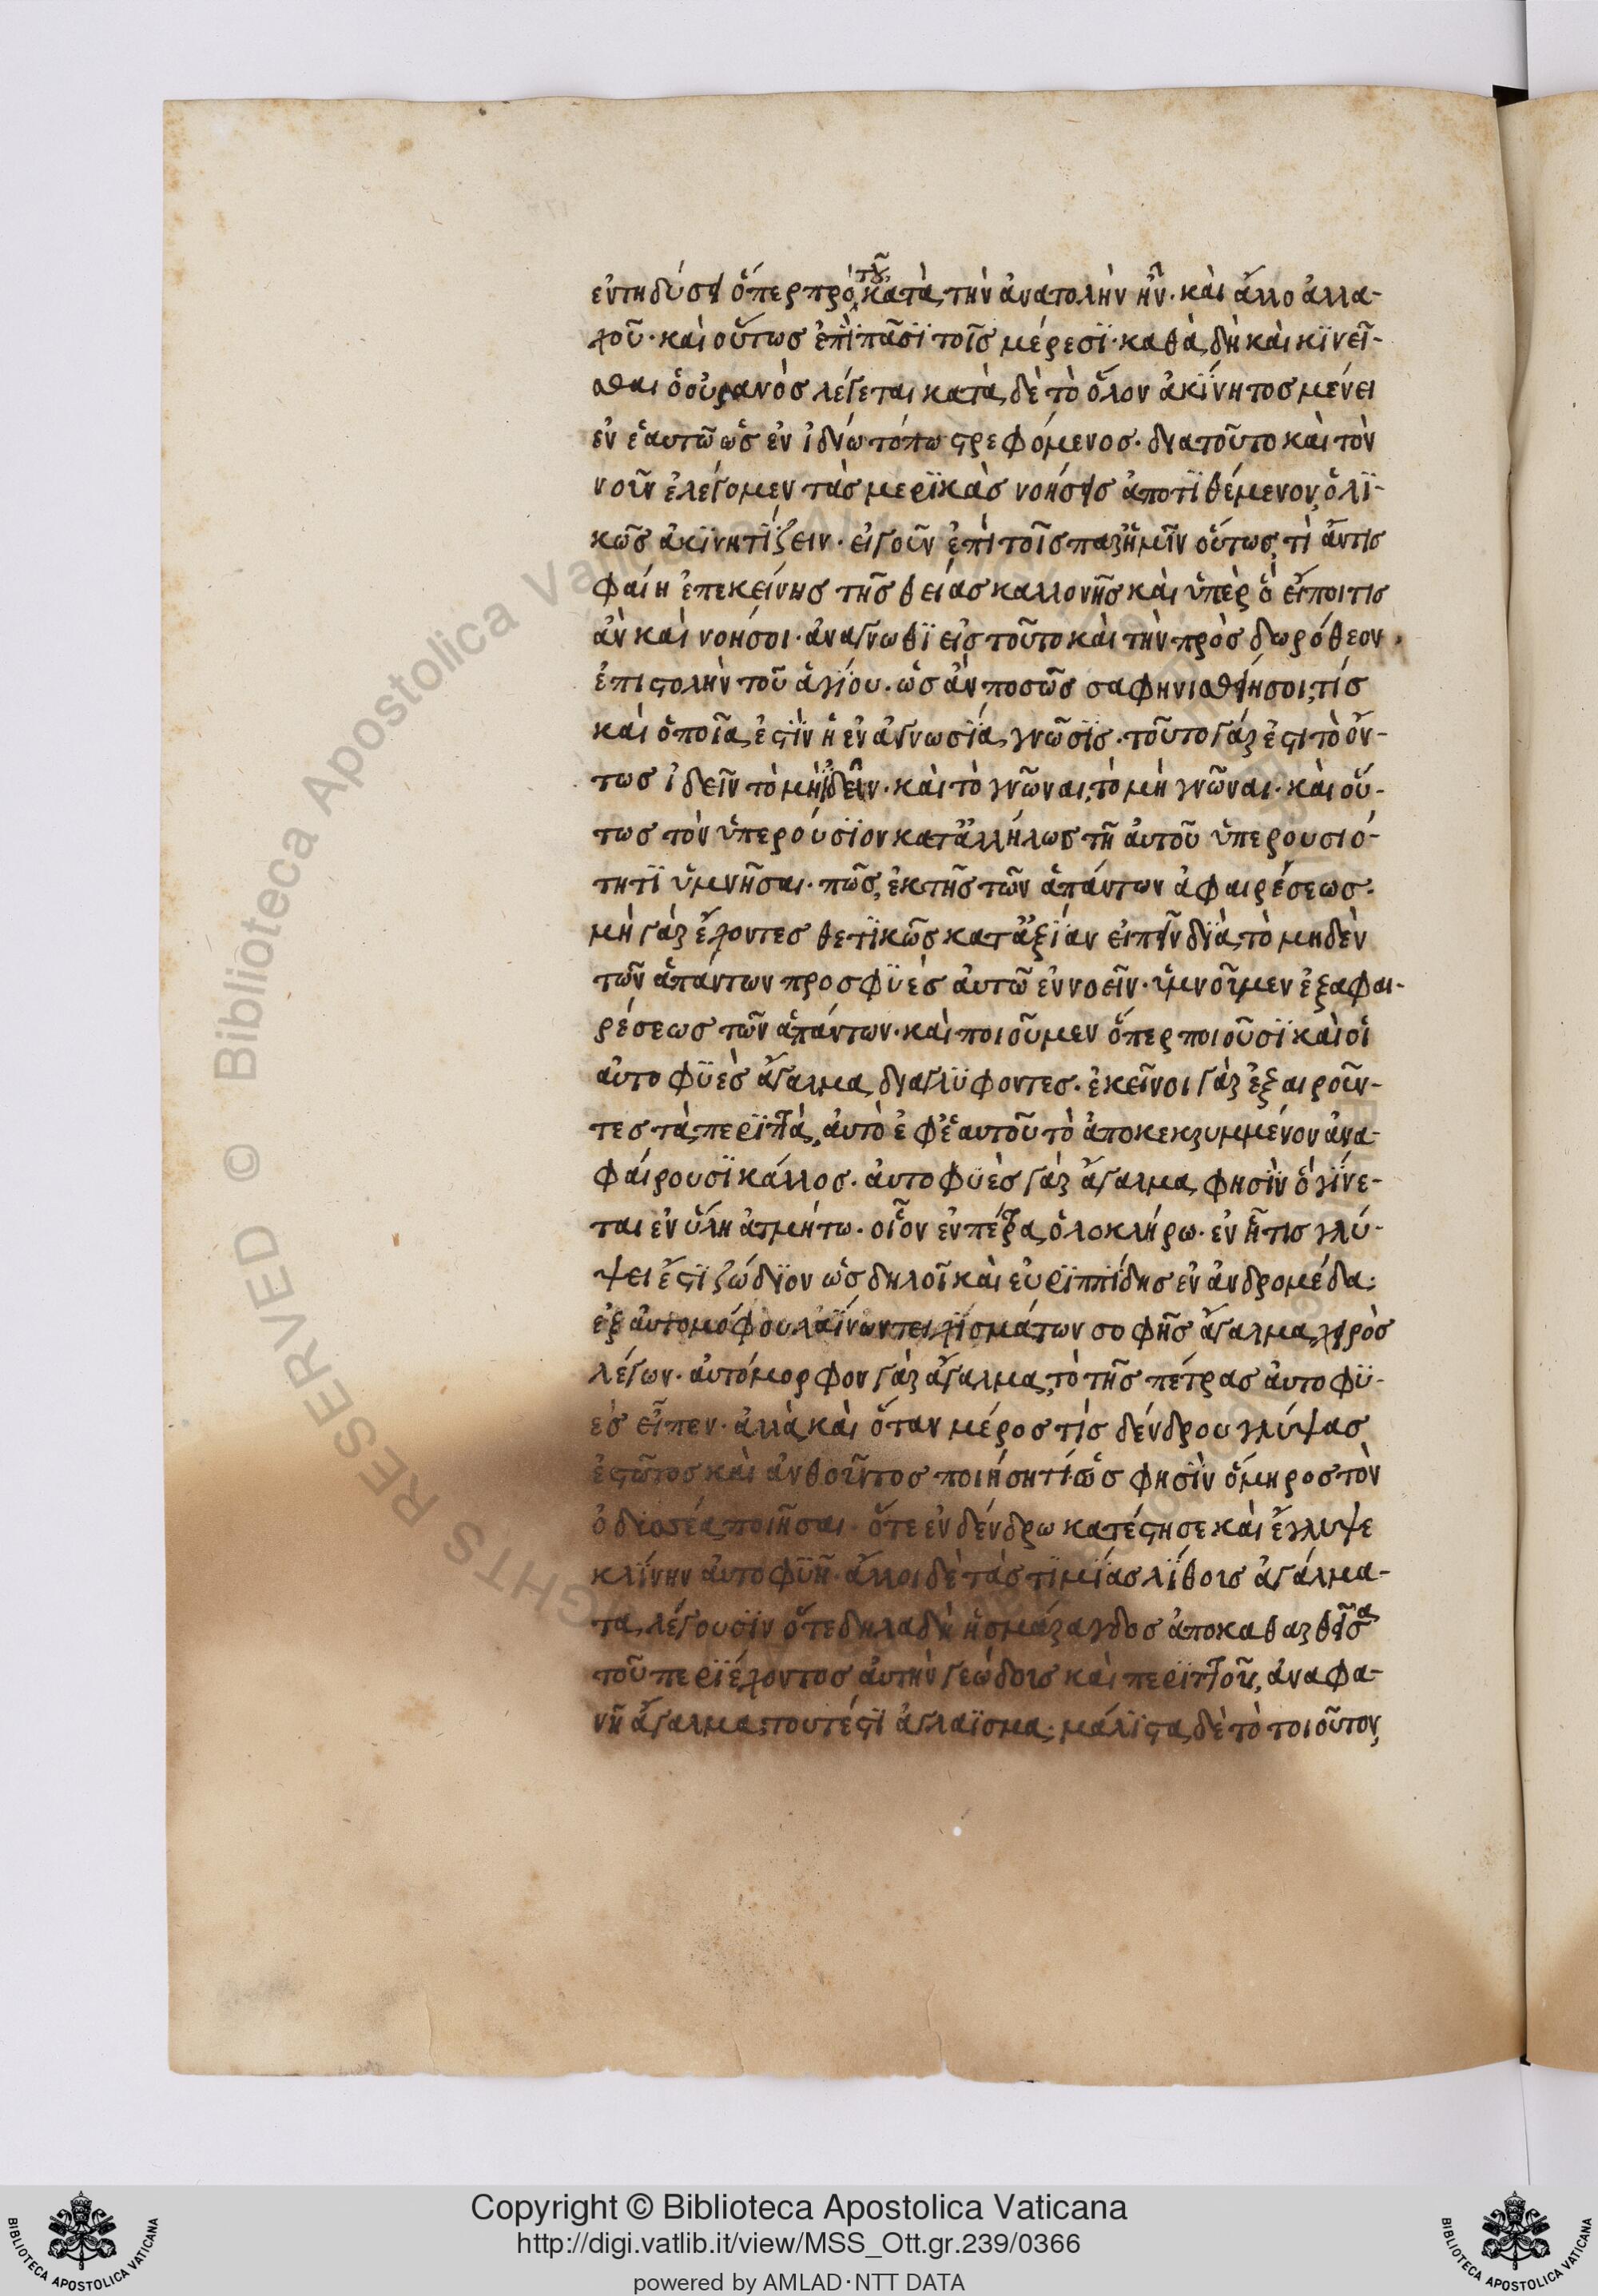 ἐν τῆ δύσει ὅπερ πρὸ τοῦ κατὰ τὴν ἀνατολὴν ἦν· καὶ ἄλλο ἀλλα-
χοῦ· καὶ οὕτως ἐπὶ πᾶσϊ τοῖς μέρεσϊ· καθὰ δὴ καὶ κϊνεῖ-
σθαι ὁ οὐρανὸς λέγεται κατὰ δὲ τὸ ὅλον ἀκίνητος μένει
ἐν ἑαυτῶ ὡς ἐν ἰδίω τόπω στρεφόμενος· διατοῦτο καὶ τὸν
νοῦν ἐλέγομεν τὰς μερϊκὰς νοήσεις ἀποτϊθέμενον, ὁλϊ-
κῶς ἀκϊνητίζειν· εἰ γοῦν ἐπὶ τοῖς παρ ἡμῖν οὕτως, τί ἄν τις
φαίη ἐπεκείνης τῆς θείας καλλονῆς καὶ ὑπὲρ ὃ εἴποι τις
ἂν καὶ νοήσοι· ἀναγνωθϊ εἰς τοῦτο καὶ τὴν πρὸς δωρόθεον
ἐπιστολὴν τοῦ ἁγίου· ὡς ἂν ποσῶς σαφηνισθείη σοι, τίς
καὶ ὁποῖα ἐστὶν ἡ ἐν ἀγνωσία γνῶσϊς· τοῦτο γάρ ἐστι τὸ ὄν-
τως ἰδεῖν τὸ μὴ ἰδεῖν· καὶ τὸ γνῶναι, τὸ μὴ γνῶναι· καὶ οὕ-
τως τὸν ὑπερούσϊον καταλλήλως τῆ αὐτοῦ ὑπερουσιό-
τητϊ ὑμνῆσαι· πῶς, ἐκ τῆς τῶν ἁπάντων ἀφαιρέσεως·
μὴ γὰρ ἔχοντες θετϊκῶς κατ ἀξίαν εἰπεῖν διὰ τὸ μηδὲν
τῶν ἁπάντων προσφϋὲς αὐτῶ ἐννοεῖν· ὑμνοῦμεν ἐξ ἀφαι-
ρέσεως τῶν ἁπάντων· καὶ ποιοῦμεν ὅπερ ποιοῦσϊ καὶ οἱ
αὐτοφϋὲς ἄγαλμα διαγλϋφοντες· ἐκεῖνοι γὰρ ἐξαιροῦν-
τες τὰ περϊττὰ, αὐτὸ ἐφ ἑαυτοῦ τὸ ἀποκεκρυμμένον ἀνα-
φαίρουσϊ κάλλος· αὐτοφϋὲς γὰρ ἄγαλμα φησὶν ὃ γίνε-
ται ἐν ὕλη ἀτμήτω· οἷον ἐν πέτρα ὁλοκλήρω· ἐν ἧ τις γλύ-
ψει ἔστϊ ζώδϊον ὡς δηλοῖ καὶ εὐρϊππίδης ἐν ἀνδρομέδα·
ἐξ αὐτομόφου λαΐνων τειχϊσμάτων σοφῆς ἄγαλμα χειρὸς
λέγων· αὐτόμορφον γὰρ ἄγαλμα, τὸ τῆς πέτρας αὐτοφϋ-
ὲς εἶπεν· ἀλλὰ καὶ ὅταν μέρος τίς δένδρου γλύψας
ἑστῶτος καὶ ἀνθοῦντος ποιήση τί ὥς φησὶν ὅμηρος τὸν
ὀδυσέα ποιῆσαι· ὅτε ἐν δένδρω κατέστησε καὶ ἔγλυψε
κλίνην αὐτοφϋῆ· ἄλλοι δὲ τὰς τϊμίας λίθοις ἀγάλμα-
τα λέγουσϊν ὅτε δηλαδὴ ἡ σμάραγδος ἀποκαθαρθεῖσα
τοῦ περϊέχοντος αὐτὴν γεώδοις καὶ περϊττοῦ, ἀναφα-
νῆ ἄγαλμα τουτέστϊ ἀγλάϊσμα· μάλϊστα δὲ τὸ τοιοῦτον,